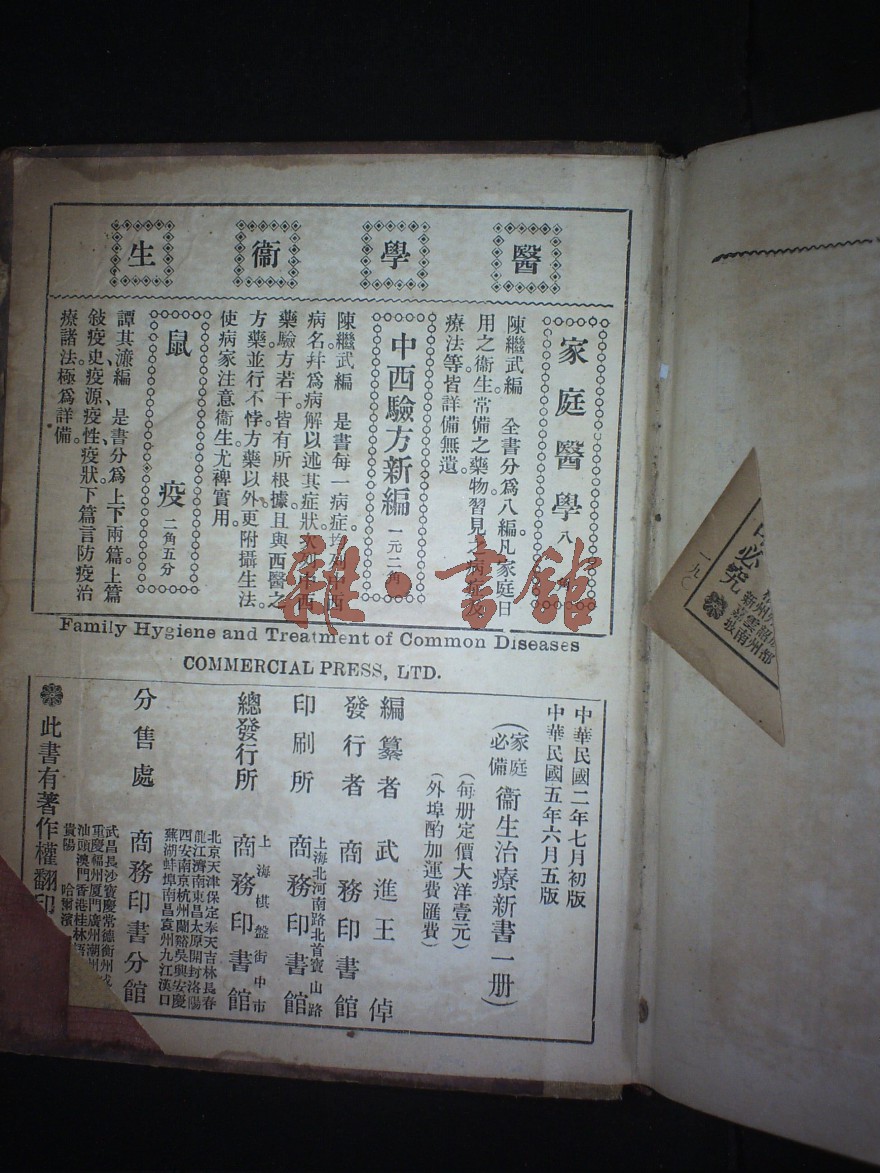 醫學衞生
家庭醫學 八角
陳繼武編 全書分爲八編。凡家庭日
用之衞生常備之藥物習見之病症及
療法等。皆詳備無遺。
中西驗方新編 一元二角
陳繼武編 是書每一病症
病名。幷爲病解以述其症狀。次列中西
藥驗方若干。皆有所根據。且與西醫之
方藥並行不悖。方藥以外。更附攝生法。
使病家注意衞生。尤裨實用。
鼠疫 二角五分
譚其濂編 是書分爲上下兩篇。上篇
敍疫史、疫源、疫性、疫狀。下篇言防疫治
療諸法。極爲詳備。
Family Hygiene and Treatment of Common Diseases
COMMERCIAL PRESS, LTD.
中華民國二年七月初版
中華民國五年六月五版
(家庭必備 衞生治療新書一册)
(每册定價大洋壹元)
(外埠酌加運費匯費)
編纂者 武進王倬
發行者 商務印書館
印刷所 上海北河南路北首寶山路 商務印書館
總發行所 上海棋盤街中市 商務印書館
分售處 商務印書分館
北京天津保定奉天吉林長春
龍江濟南東昌太原開封洛陽
西安南京杭州蘭谿吳興安慶
蕪湖蚌埠南昌袁州九江漢口
武昌長沙寶慶常德衡州
重慶福州厦門廣州潮州
汕頭澳門香港桂林梧
貴陽 哈爾濱
此書有著作權翻印
必究
雜·書館